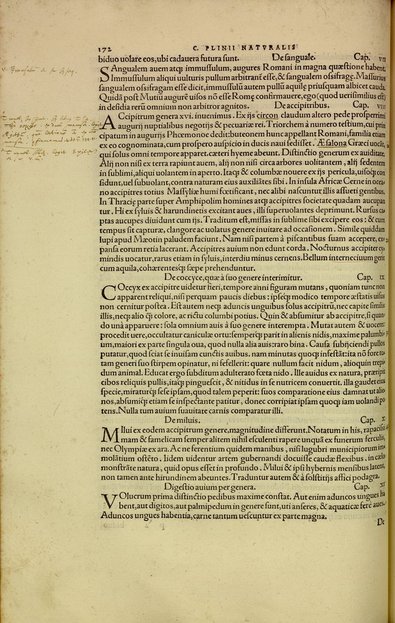 172 C. PLINII NATVRALIS
biduo uolare eos, ubi cadauera futura sunt. De sanguale. Cap. VII
SAngualem auem atq; immussulum, augures Romani in magna quæstione habent.
Immussulum aliqui uulturis pullum arbitrant̃ esse, & sangualem ossifragę. Massurius
sangualem ossifragam esse dicit, immussulũ autem pullũ aquilę priusquam albicet cauda.
Quidã post Mutiũ augurẽ uisos nõ esse Romę confirmauere, ego (quod uerisimilius est)
in desidia rerũ omnium non arbitror agnitos. De accipitribus. Cap. VIII
ACcipitrum genera xvi. inuenimus. Ex ijs circon claudum altero pede prosperrimi
augurij nuptialibus negotijs & pecuariæ rei. Triorchem à numero testium, cui prin
cipatum in augurijs Phœmonoë dedit: buteonem hunc appellant Romani, familia etiam
ex eo cognominata, cum prospero auspicio in ducis naui sedisset. Æsalona Græci uocãt,
qui solus omni tempore apparet. cæteri hyeme abeunt. Distinctio generum ex auiditate.
Alij non nisi ex terra rapiunt auem, alij non nisi circa arbores uolitantem, alij sedentem
in sublimi, aliqui uolantem in aperto. Itaq; & columbæ nouere ex ijs pericula, uisoq; con
sidunt, uel subuolant, contra naturam eius auxiliãtes sibi. In insula Africæ Cerne in ocea
no accipitres totius Massyliæ humi fœtificant, nec alibi nascuntur illis assueti gentibus.
In Thraciæ parte super Amphipolim homines atq; accipitres societate quadam aucupan
tur. Hi ex syluis & harundinetis excitant aues, illi superuolantes deprimunt. Rursus ca
ptas aucupes diuidunt cum ijs. Traditum est, missas in sublime sibi excipere eos: & cum
tempus sit capturæ, clangore ac uolatus genere inuitare ad occasionem. Simile quiddam
lupi apud Mæotin paludem faciunt. Nam nisi partem à piscantibus suam accepere, ex
pansa eorum retia lacerant. Accipitres auium non edunt corda. Nocturnus accipiter
mindis uocatur, rarus etiam in syluis, interdiu minus cernens. Bellum internecium gerit
cum aquila, cohærentesq; sæpe prehenduntur.
De coccyce, quæ à suo genere interimitur. Cap. IX
COccyx ex accipitre uidetur fieri, tempore anni figuram mutans, quoniam tunc non
apparent reliqui, nisi perquam paucis diebus: ipseq; modico tempore æstatis uisus
non cernitur postea. Est autem neq; aduncis unguibus solus accipitrũ, nec capite similis
illis, neq; alio q̃ colore, ac rictu columbi potius. Quin & absumitur ab accipitre, si quan
do unà apparuere: sola omnium auis à suo genere interempta. Mutat autem & uocem:
procedit uere, occultatur caniculæ ortu: semperq; parit in alienis nidis, maxime palumbi
um, maiori ex parte singula oua, quod nulla alia auis: raro bina. Causa subijciendi pullos
putatur, quod sciat se inuisam cunctis auibus. nam minutas quoq; infestãt: ita nõ fore tu-
tam generi suo stirpem opinatur, ni fefellerit: quare nullum facit nidum, alioquin trepi-
dum animal. Educat ergo subdititũ adulterato fœta nido. Ille auidus ex natura, præripit
cibos reliquis pullis, itaq; pinguescit, & nitidus in se nutricem conuertit. illa gaudet eius
specie, miraturq; se se ipsam, quod talem peperit: suos comparatione eius damnat ut alie
nos, absumiq; etiam se inspectante patitur, donec corripiat ipsam quoq; iam uolandi po-
tens. Nulla tum auium suauitate carnis comparatur illi.
De miluis. Cap. X
MIlui ex eodem accipitrum genere, magnitudine differunt. Notatum in his, rapacissi
mam & famelicam semper alitem nihil esculenti rapere unquã ex funerum ferculis,
nec Olympiæ ex ara. Ac ne ferentium quidem manibus, nisi lugubri municipiorum im-
molãtium ostẽto. Iidem uidentur artem gubernandi docuisse caudæ flexibus. in cælo
monstrãte natura, quid opus esset in profundo. Milui & ipsi hybernis mensibus latent,
non tamen ante hirundinem abeuntes. Traduntur autem & à solstitijs affici podagra.
Digestio auium per genera. Cap. XI
VOlucrum prima distinctio pedibus maxime constat. Aut enim aduncos ungues ha
bent, aut digitos, aut palmipedum in genere sunt, uti anseres, & aquaticæ ferè aues.
Aduncos ungues habentia, carne tantum uescuntur ex parte magna.
De